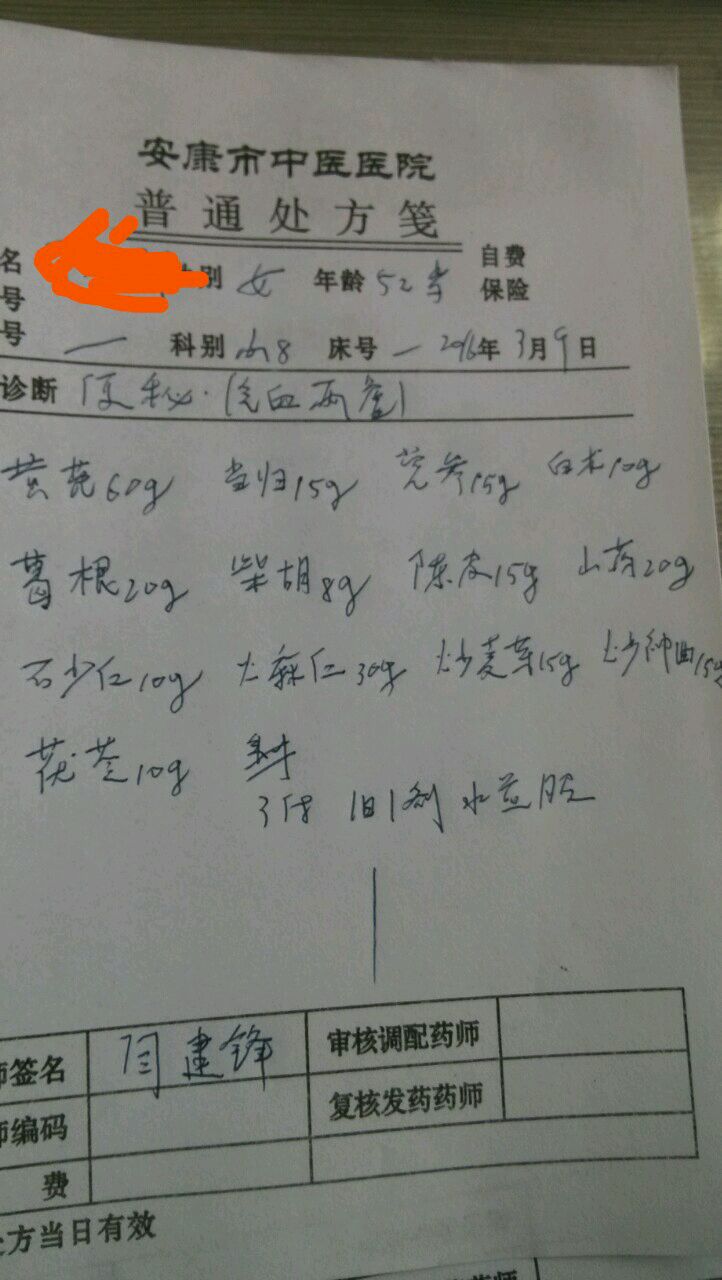 安康市中医医院
普通处方笺
名 性别 女 年龄 52岁 自费
号 保险
号 一 科别 内8 床号 一 2016年3月9日
诊断 便秘.(气血两虚)
黄芪60g 当归15g 党参15g 白术10g
葛根20g 柴胡8g 陈皮15g 山药20g
石少仁10g 火麻仁30g 炒麦芽15g 炒神曲15g
茯苓10g
3付 1日1剂 水煎服
师签名 闫建锋 审核调配药师
师编码 复核发药药师
费
处方当日有效